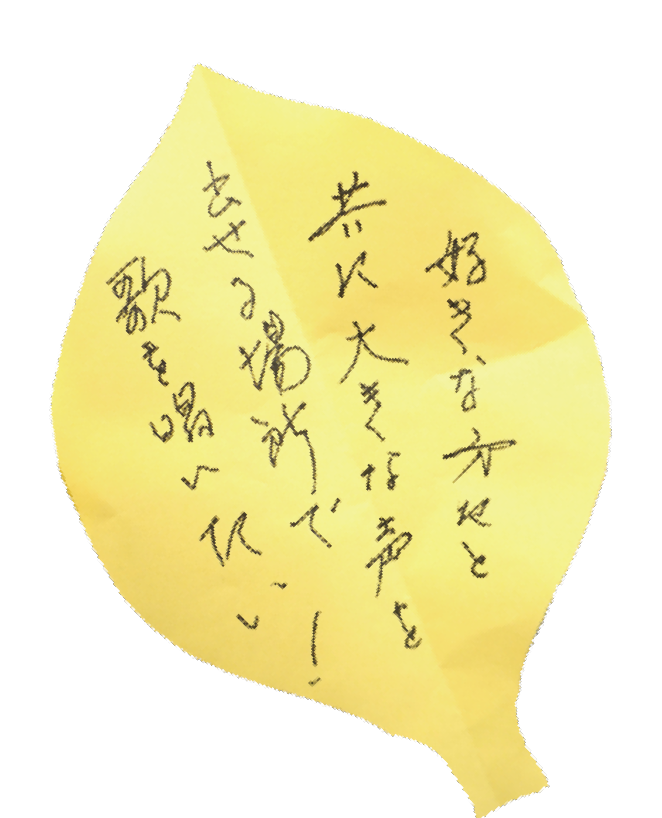 好きな方と
共に大きな声を
出せる場所で！
歌を唱いたい